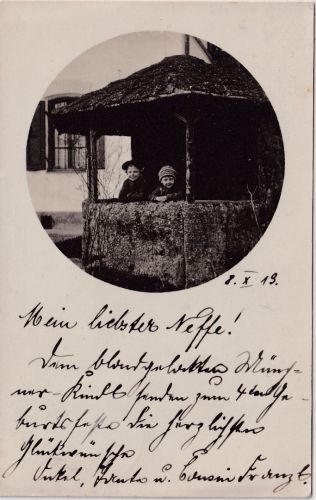 8. X 19.
Mein liebster Neffe!
Dem blondgelockten Münch-
ner-Kindl senden zum 4ten Ge-
burtsfeste die herzlichsten
Glückwünsche
Onkel, Tante u. Cousin Franzl.